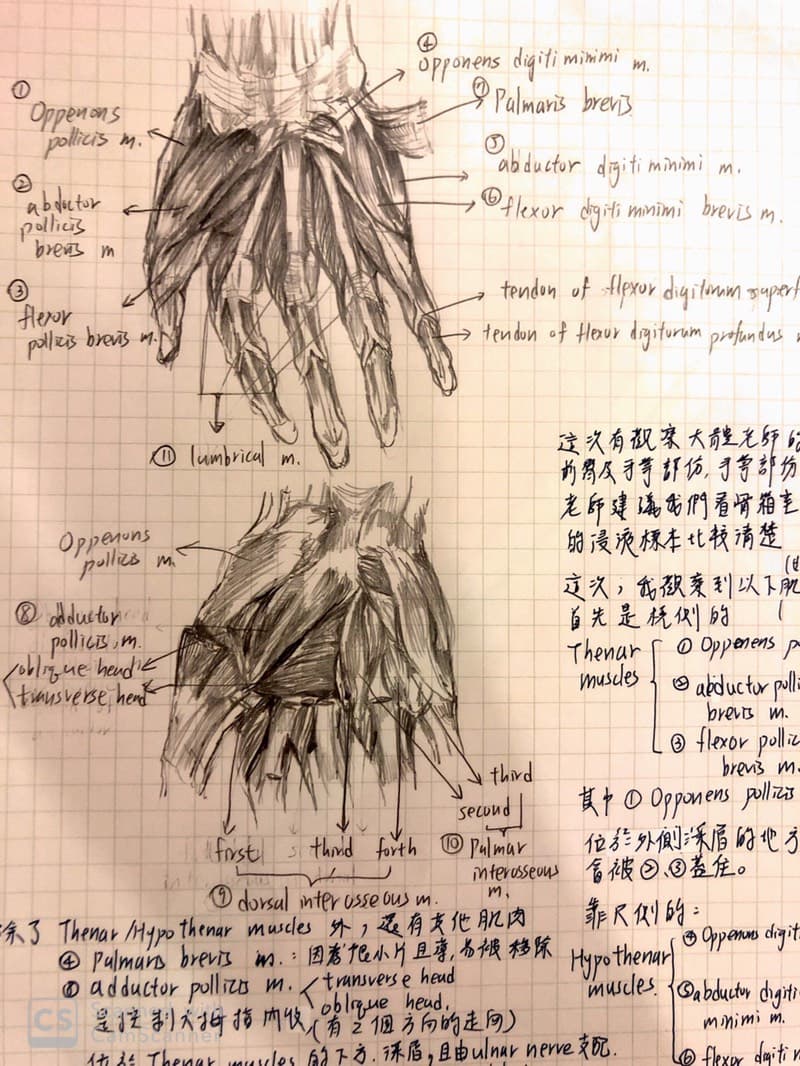 ① Oppenons
pollicis m.
② abductor
pollicis
brevis m
③
flexor
pollicis brevis m.
④
opponens digiti minimi m.
⑦ Palmaris brevis
⑤
abductor digiti minimi m.
⑥ flexor digiti minimi brevis m.
tendon of flexor digitorum superf
tendon of flexor digitorum profundus
⑪ lumbrical m.
Oppenons
pollicis m.
⑧ adductor
pollicis, m.
oblique head
transverse head
first third forth
⑨ dorsal interosseous m.
third
second
⑩ Palmar
interosseous
m.
這次有觀察大體老師的
前臂及手掌部份,手掌部份
老師建議我們看骨箱室
的浸液標本比較清楚
這次,我觀察到以下肌
首先是橈側的
Thenar
muscles
① Oppenens po
② abductor polli
brevis m.
③ flexor pollic
brevis m.
其中 ① Opponens pollicis
位於外側深層的地方
會被②、③蓋住。
靠尺側的:
Hypothenar
muscles.
④ Opponens digit
⑤ abductor digiti
minimi m.
⑥ flexor digi
除了 Thenar/Hypothenar muscles 外,還有其他肌肉
④ Palmaris brevis m.:因為很小片且薄,易被移除
⑧ adductor pollicis m.
transverse head
oblique head.
是控制大拇指內收(有2個方向的走向)
位於 Thenar muscles 的下方.深層,且由ulnar nerve支配.
CS
CamScanner